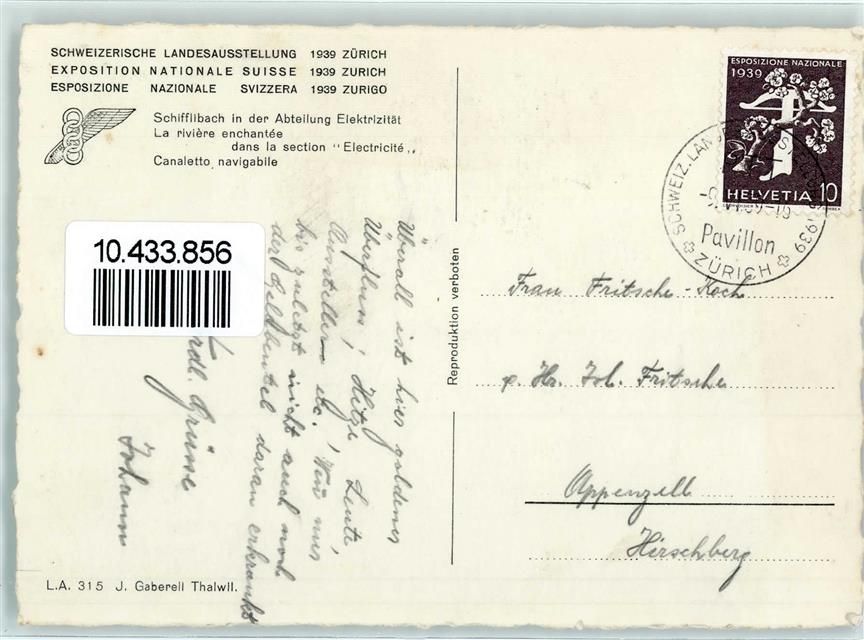 SCHWEIZERISCHE LANDESAUSSTELLUNG 1939 ZÜRICH
EXPOSITION NATIONALE SUISSE 1939 ZURICH
ESPOSIZIONE NAZIONALE SVIZZERA 1939 ZURIGO
Schifflibach in der Abteilung Elektrizität
La rivière enchantée
dans la section "Electricité„
Canaletto navigabile
ESPOSIZIONE NAZIONALE
1939
HELVETIA 10
SCHWEIZ. 1939
Pavillon
ZÜRICH
10.433.856
Überall ist hier goldener
Überfluss! Hitze, Leute,
Aussteller etc.! Wenn nur
bis zuletzt nicht auch noch
der Geldbeutel daran erkrankt
Grüsse
Johann
Reproduktion verboten
Frau Fritsche-Koch
p. Hr. Joh. Fritsche
Appenzell
Hirschberg
L.A. 315 J. Gaberell Thalwil.